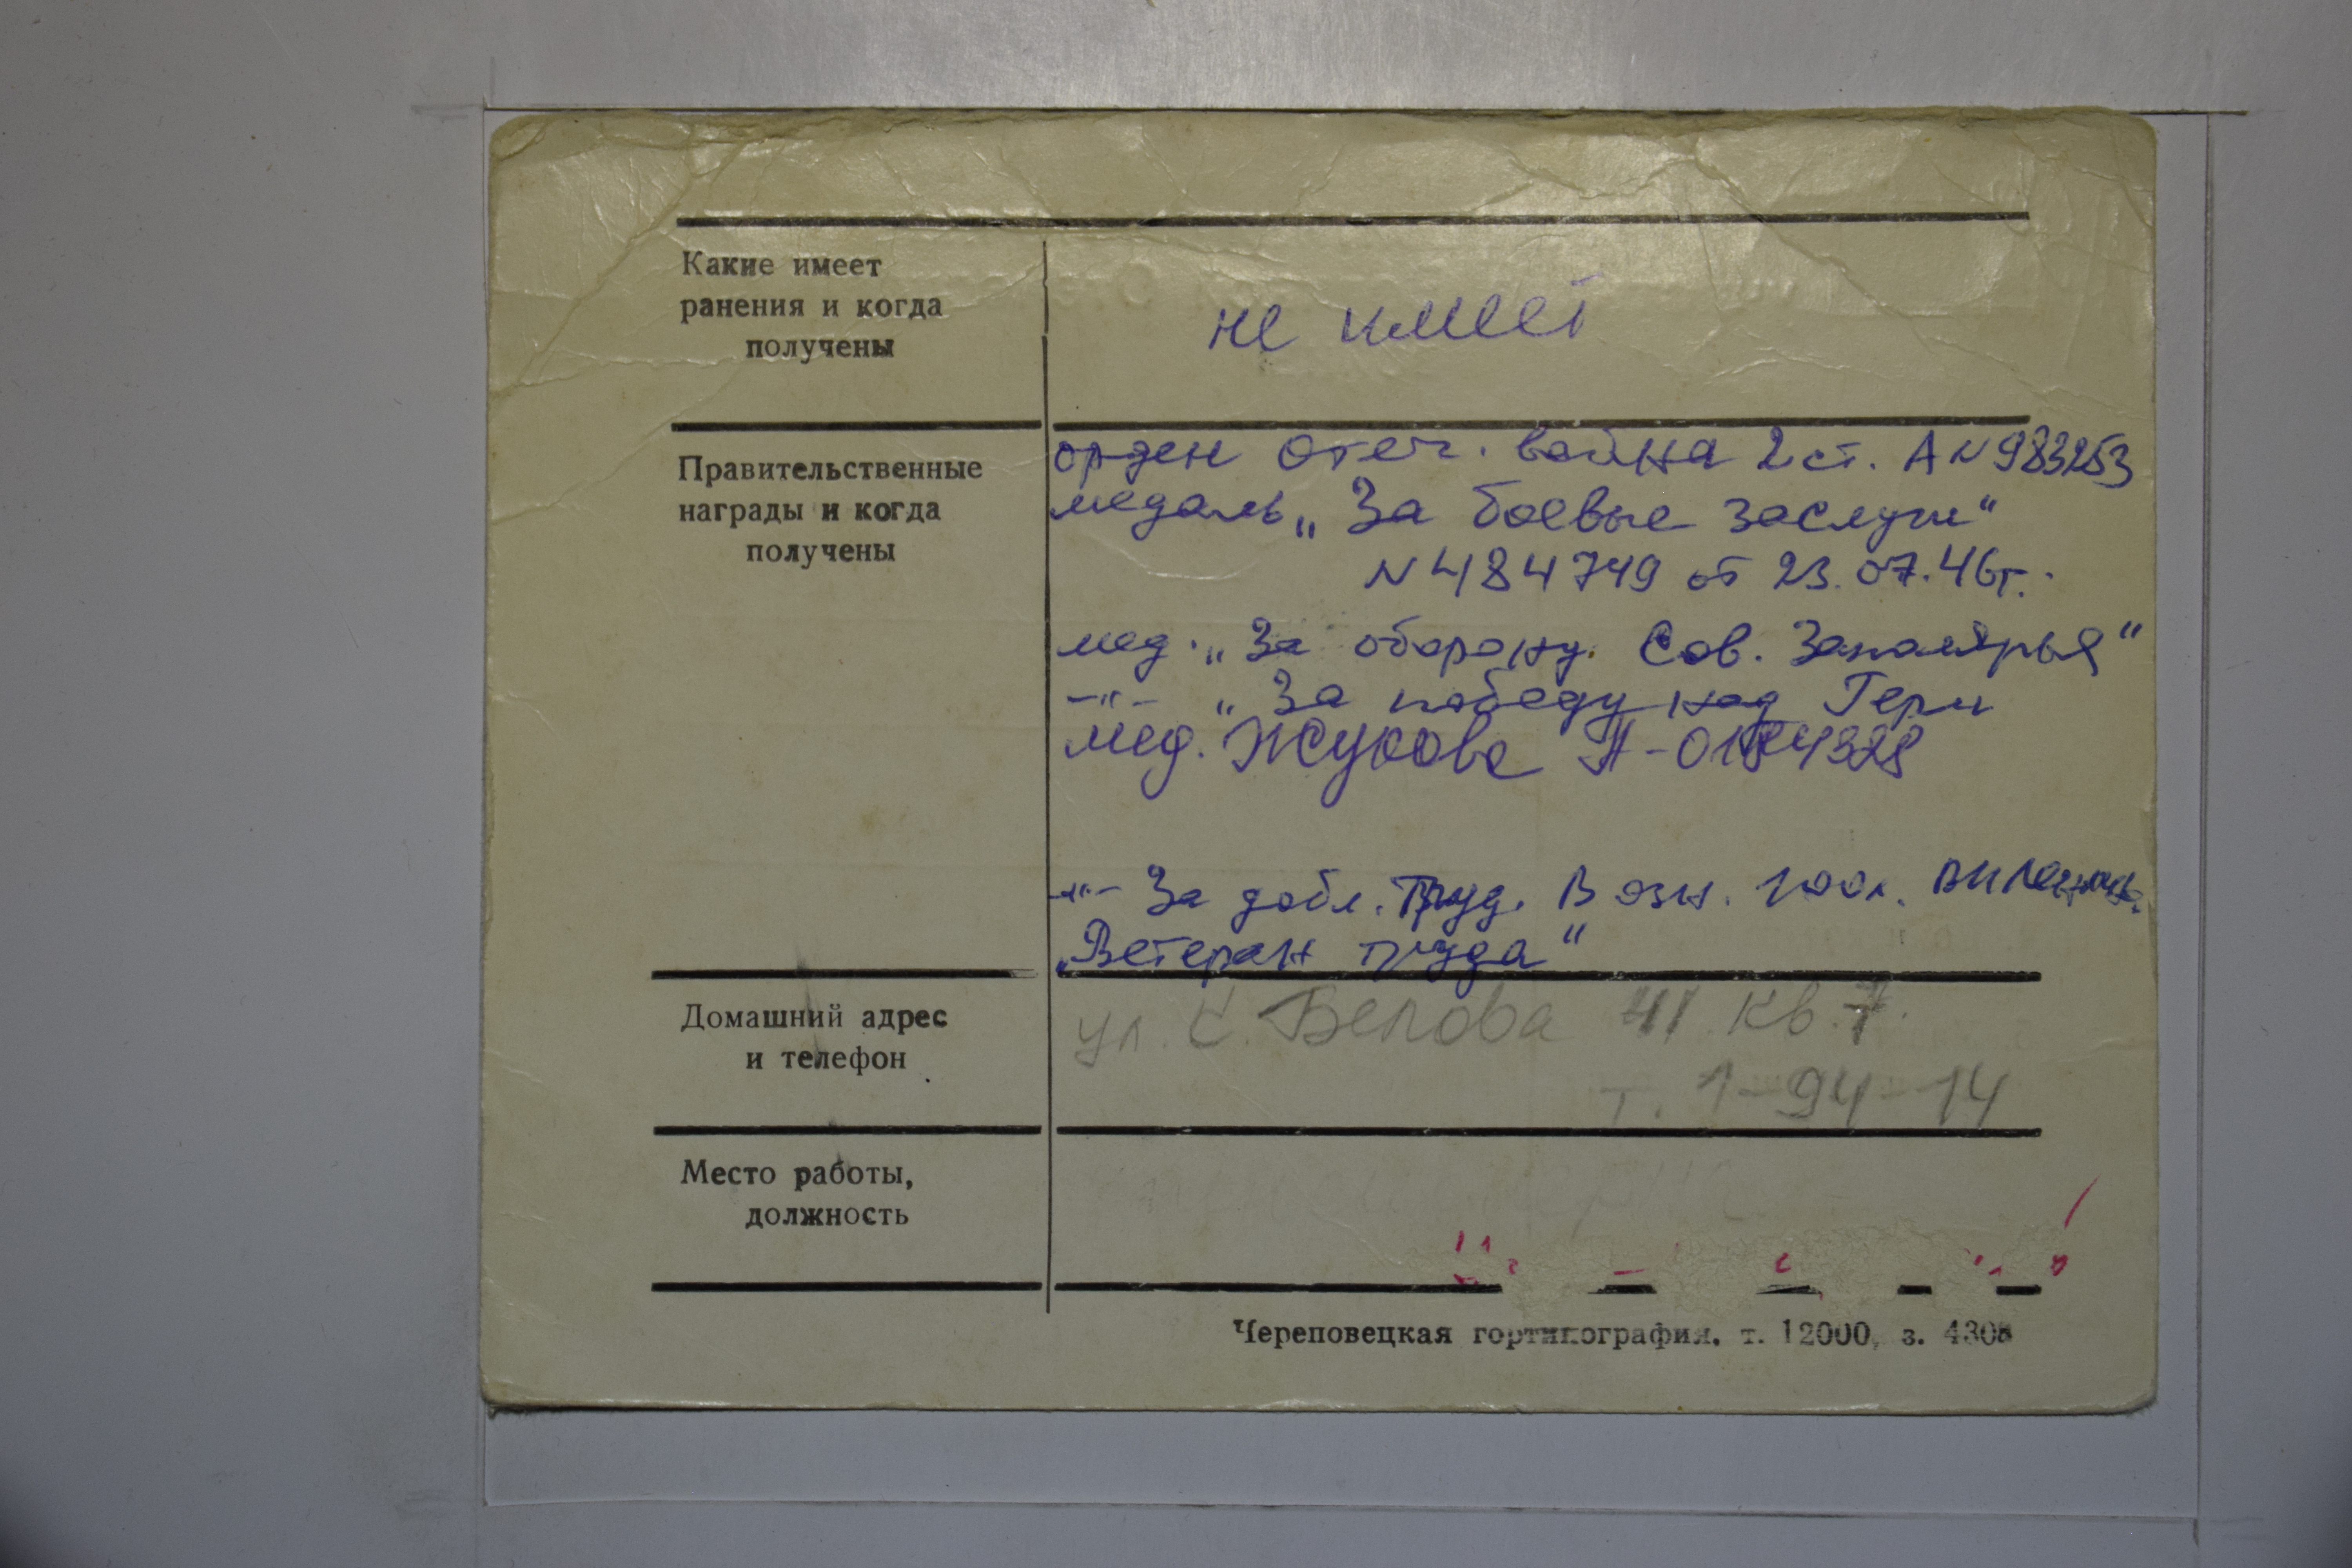 Какие имеет
ранения и когда
получены
не имеет
Правительственные
награды и когда
получены
орден Отеч. война 2 ст. А N 983253
медаль „За боевые заслуги“
N 484749 от 23.07.46г.
мед. „За оборону Сов. Заполярья“
-"- „За победу над Герм
мед. Жукова А-0184328
-"- За добл. труд. В озн. 100л. ВИ Ленина
„Ветеран труда“
Домашний адрес
и телефон
ул. С. Белова 41 кв. 7.
т. 1-94-14
Место работы,
должность
Череповецкая гортипография. т. 12000, з. 4308